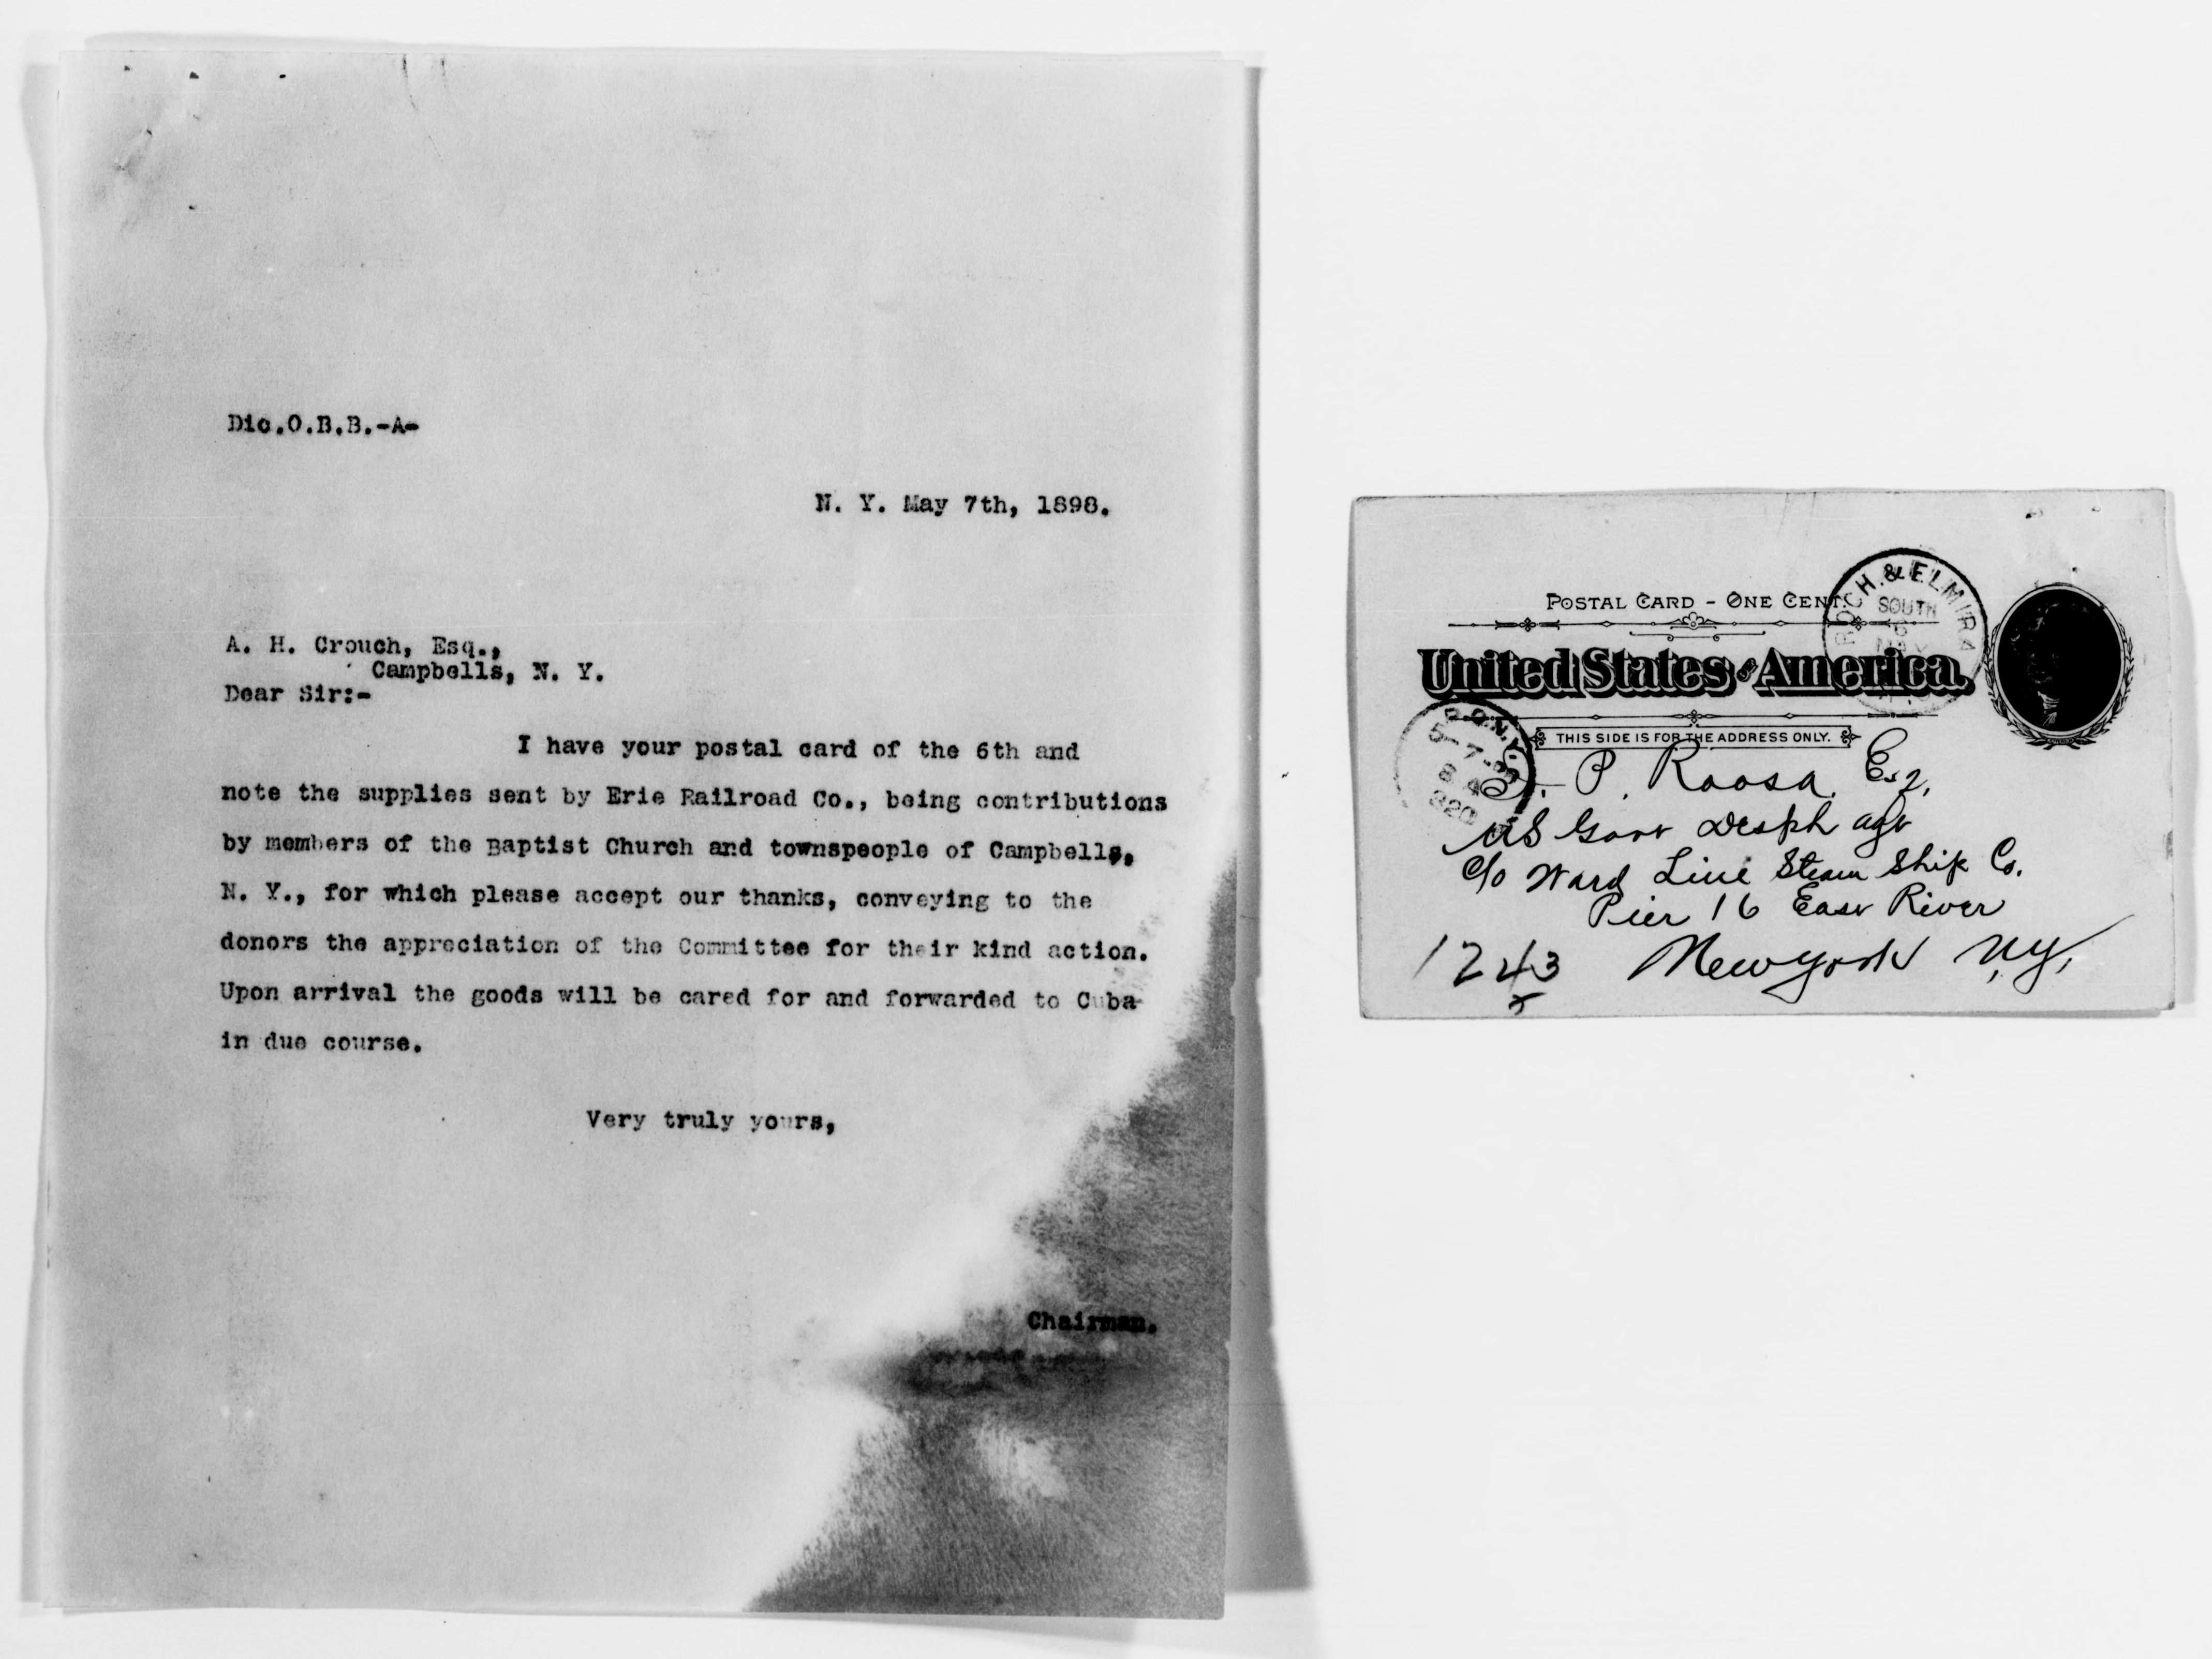 Dic.O.B.B.-A-
N. Y. May 7th, 1898.
A. H. Crouch, Esq.,
Campbells, N. Y.
Dear Sir:-
I have your postal card of the 6th and
note the supplies sent by Erie Railroad Co., being contributions
by members of the Baptist Church and townspeople of Campbells,
N. Y., for which please accept our thanks, conveying to the
donors the appreciation of the Committee for their kind action.
Upon arrival the goods will be cared for and forwarded to Cuba
in due course.
Very truly yours,
Chairman.
POSTAL CARD - ONE CENT.
ROCH. & ELMIRA
SOUTH
6
MAY
United States of America.
THIS SIDE IS FOR THE ADDRESS ONLY.
P.O.N.Y.
5-7-98
8 A
820
S. P. Roosa, Esq,
US Govt Desph agt
c/o Ward Line Steam Ship Co.
Pier 16 East River
1243 New York N.Y.